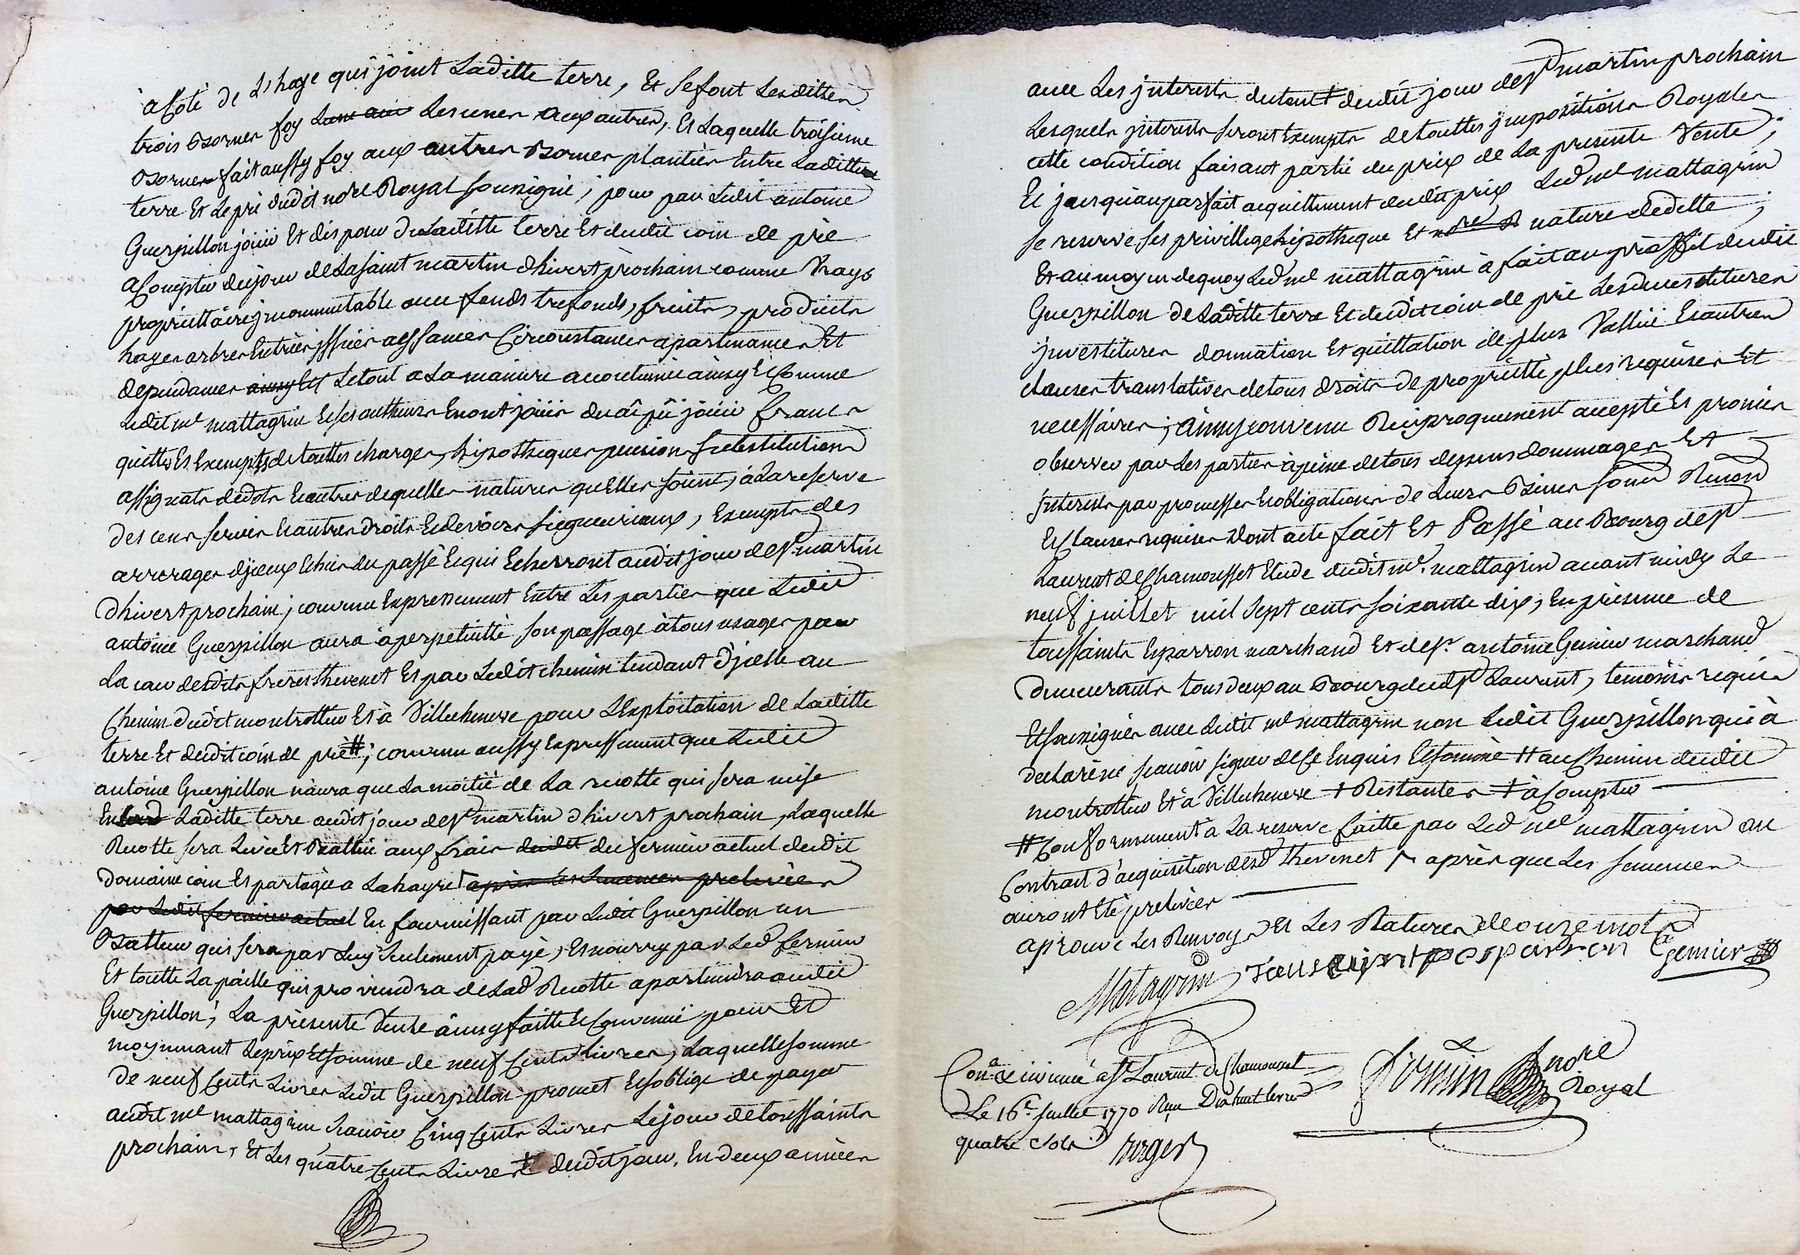 à Coté de L'haye qui joint Laditte terre, Et se font Lesdittes
trois Bornes foy L'une aux Les unes aux autres, Et Laquelle troisieme
Borne fait aussy foy aux autres Bornes plantées Entre Laditte
terre Et Le pré dudit nore Royal soussigné; pour par Ledit antoine
Guerpillon jouir Et disposer de Laditte terre Et dudit coin de pré
a Compter du jour de La saint martin d'hivert prochain comme Vrays
propriettaire jncommutable avec fonds trefonds, fruits, produits
hayes arbres Entrées jssües aysances Circonstances apartenances Et
dependances ainsy Et Le tout a La maniere accoutumée ainsy Et Comme
Ledit me mattagrin Et ses autheurs En ont joüis du ou pû joüir francs
quittes Et Exempts de touttes charges, hipotheques pensions substitutions
assignats de dots Et autres de quelles natures qu'Elles soient, à La reserve
des cens servis Et autres droits Et devoirs seigneuriaux, Exempts des
arrerages d'jceux Echus du passé Et qui Echerront audit jour de St martin
d'hivert prochain; convenu Expressement Entre Les parties que Ledit
antoine Guerpillon aura à perpetuitté son passage à tous usages par
La cour desdits freres thevenet Et par Ledit chemin tendant d'jcelle au
Chemin dudit montrottier Et à Villecheneve pour L'Exploitation de Laditte
terre Et dudit coin de pré #; convenu aussy Expressement que Ledit
antoine Guerpillon n'aura que La moitié de La recolte qui sera mise
En Laditte terre audit jour de St martin d'hivert prochain, Laquelle
Recolte sera Levée Et Battüe aux frais dudit du fermier actuel dudit
Domaine Et partagée a après Les semences prelevées
par Ledit fermier actuel En fournissant par Ledit Guerpillon un
Batteur qui sera par Luy seulement payé, Et nourry par Led fermier
Et toutte La paille qui proviendra de Lad Recolte apartiendra audit
Guerpillon; La presente Vente ainsy faitte Et Convenüe pour Et
moyennant Le prix Et somme de neuf Cents Livres, Laquelle somme
de neuf Cents Livres Ledit Guerpillon promet Et s'oblige de payer
audit me mattagrin scavoir Cinq Cents Livres Le jour de toussaints
prochain, Et Les quatre Cents Livres + dudit jour, En deux années
avec Les jnterests du tout ‡ dudit jour de St martin prochain
Lesquels jnterests seront Exempts de touttes jmpositions Royales
cette condition faisant partie du prix de La presente Vente;
Et jusqu'au parfait acquittement dudit prix Led me mattagrin
se reserve ses privillege hipotheque Et nature de dette;
Et au moyen de quoy Led me mattagrin à fait au proffit dudit
Guerpillon de Laditte terre Et dudit coin de pré Les devestitures
jnvestitures donnation Et quittation de plus Vallüe Et autres
clauses translatives de tous droits de propriétté plus requises Et
necessaires; ainsy convenu Reciproquement accepté Et promis
observer par Les parties à peine de tous depens dommages Et
jnterests par promesses Et obligations de Leurs Biens soum Renon
Et Clauses requises Dont acte fait Et Passé au Bourg de St
Laurent de Chamousset Etude dudit me mattagrin avant midy Le
neuf juillet mil sept cents soixante dix; En presence de
toussaints Esparron marchand Et de sr antoine Genier marchand
demeurants tous deux au Bourg dudit St Laurent, temoins requis
Et soussignés avec Ledit me mattagrin non Ledit Guerpillon qui à
declaré ne scavoir signer de ce Enquis Et sommé ++ au Chemin dudit
montrottier Et à Villecheneve + Restantes ‡ à Compter
# Conformement à La reserve faitte par Led me mattagrin au
Contrat d'acquisition desd thevenet après que Les semences
auront Eté prelevées
aprouvé Les Renvoys Et Les Ratures de onze mots
Matagrin Toussaint Esparron Genier
Conlé & insinué à St Laurent de Chamousset
Le 16e Juillet 1770 Reçu Dix huit livres
quatre Sols
nore
Royal